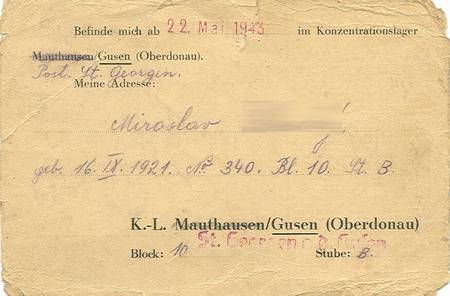 Befinde mich ab 22. Mai 1943 im Konzentrationslager
Mauthausen/Gusen (Oberdonau).
Post. St. Georgen.
Meine Adresse:
Miroslav
geb. 16. IX. 1921. No. 340. Bl. 10. St. B.
K.-L. Mauthausen/Gusen (Oberdonau)
St. Georgen a. d. Gusen
Block: 10 Stube: B.